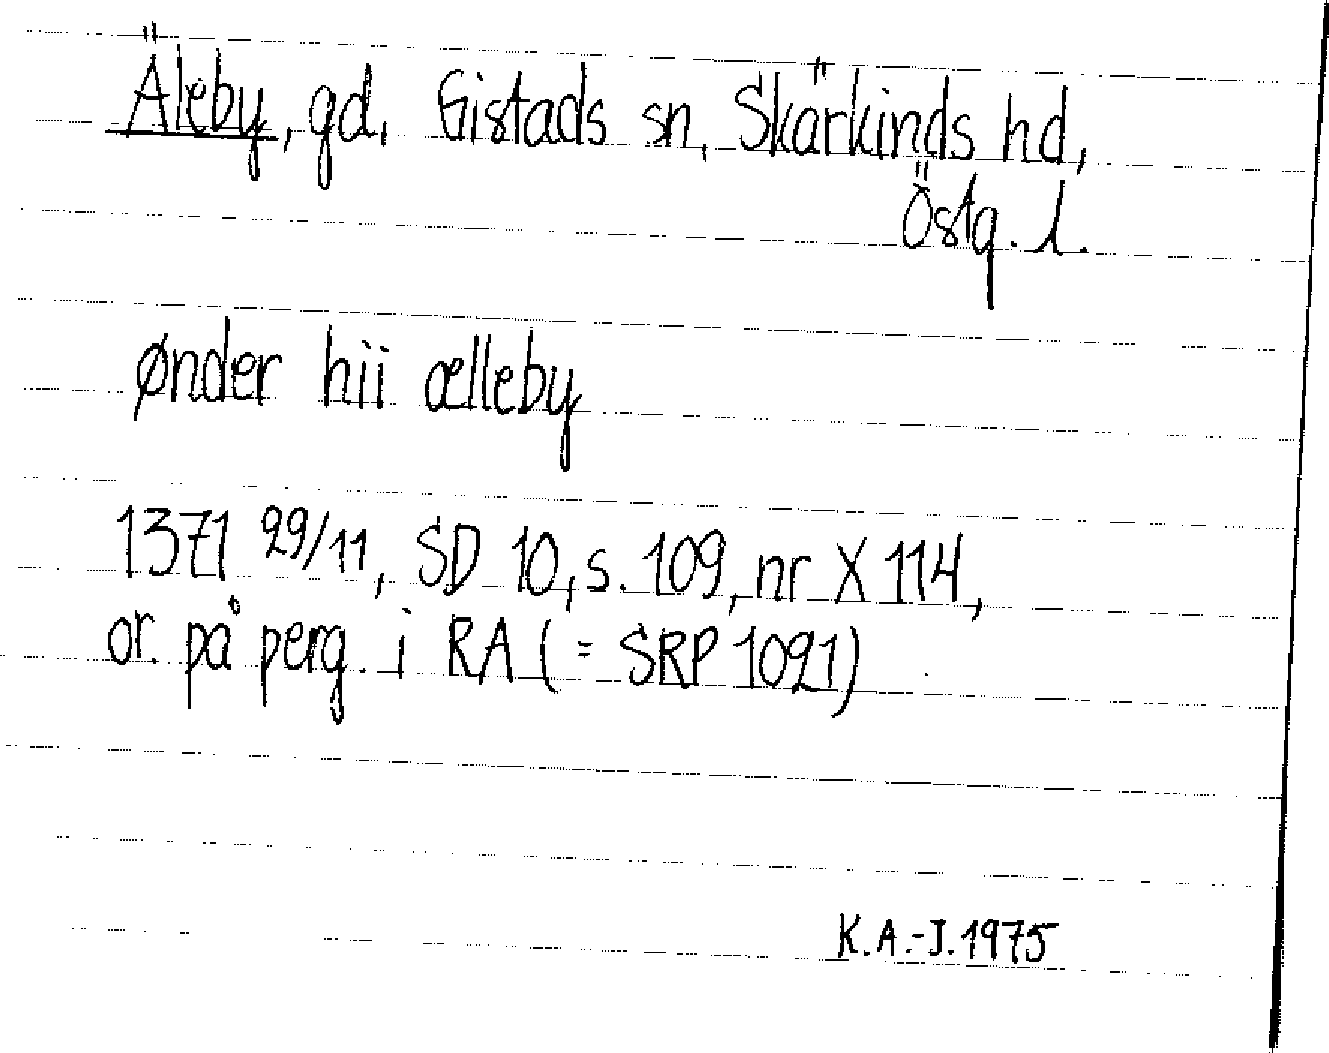 Äleby, gd, Gistads sn, Skärkinds hd,
Östg. l.
ønder hii ælleby
1371 29/11, SD 10, s. 109, nr X 114,
or. på perg. i RA (= SRP 1091)
K.A.-J. 1975